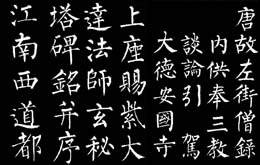 唐故左街僧録
内供奉三教
談論引駕
大德安國寺
上座賜紫大
達法師玄秘
塔碑銘并序
江南西道都